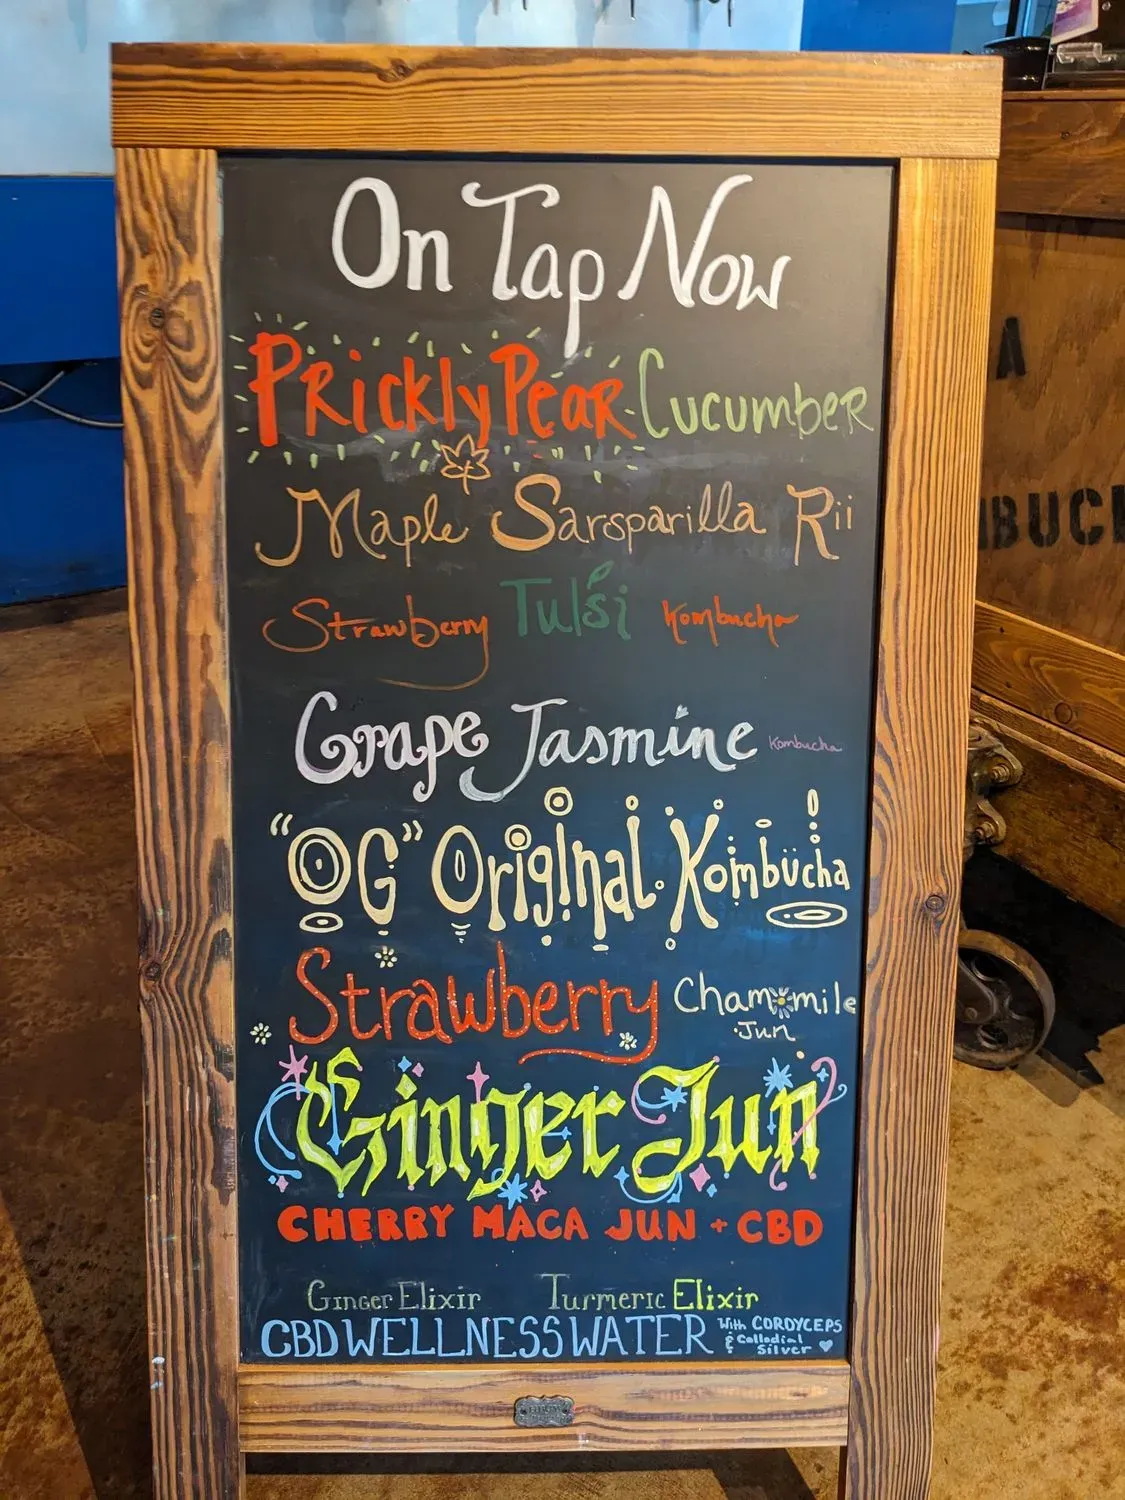 On Tap Now
Prickly Pear Cucumber
Maple Sarsparilla Rii
Strawberry Tulsi Kombucha
Grape Jasmine Kombucha
"OG" Original Kombücha!
Strawberry Chamomile
Jun
Ginger Jun
CHERRY MACA JUN + CBD
Ginger Elixir Turmeric Elixir
CBD WELLNESS WATER With CORDYCEPS
& Collodial
Silver
A
BUC